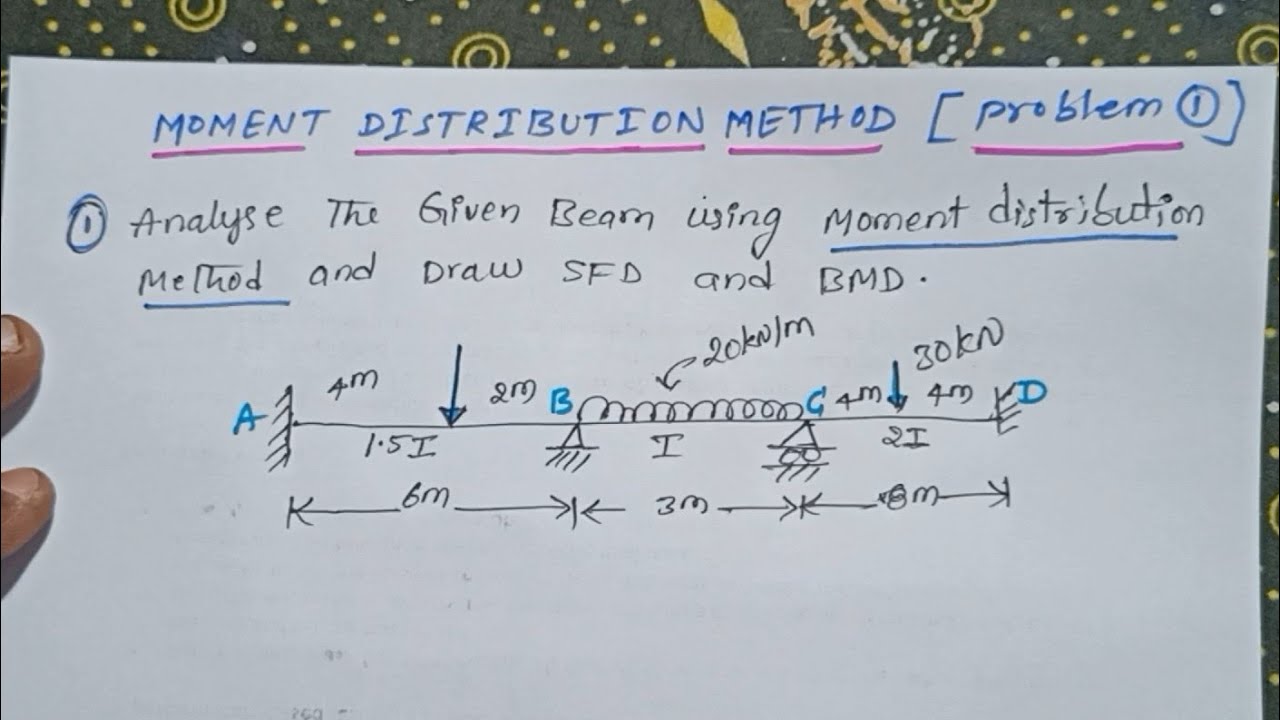 MOMENT DISTRIBUTION METHOD [Problem ①]
① Analyse The Given Beam using Moment distribution
Method and Draw SFD and BMD.
20kN/m
30kN
4m 2m 4m 4m
A B C D
1.5I I 2I
6m 3m 8m